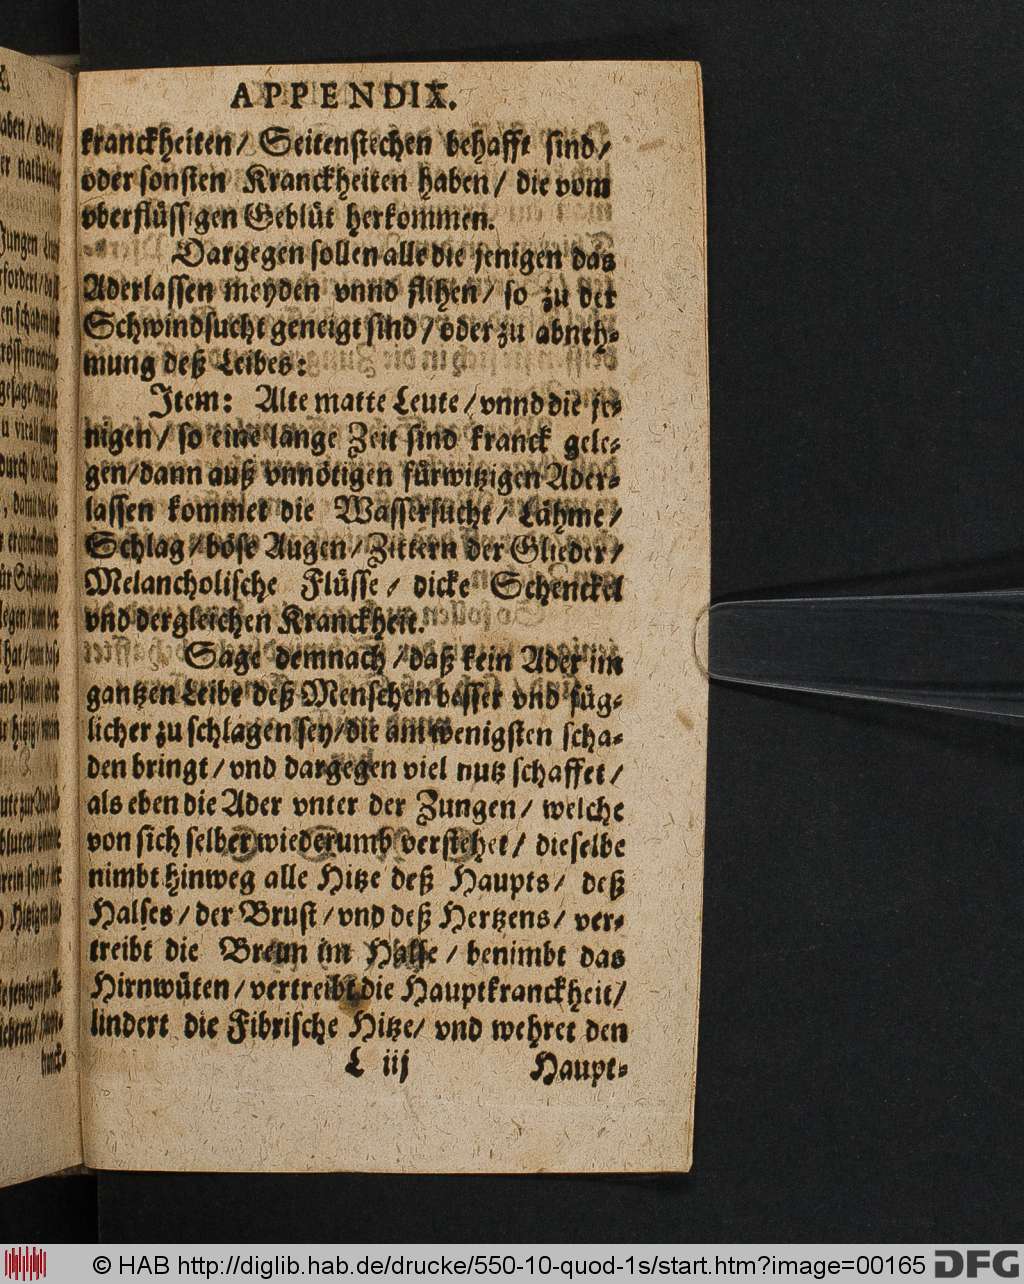 APPENDIX.
kranckheiten/ Seitenstechen behafft sind/
oder sonsten Kranckheiten haben/ die vom
vberflüssigen Geblüt herkommen.
Dargegen sollen alle die jenigen das
Aderlassen meyden vnnd flihen/ so zu der
Schwindsucht geneigt sind/ oder zu abneh-
mung deß Leibes:
Item: Alte matte Leute/ vnnd die je-
nigen/ so eine lange Zeit sind kranck gele-
gen/ dann auß vnnötigen fürwitzigen Ader-
lassen kommet die Wassersucht/ Lähme/
Schlag/ böse Augen/ Zittern der Glieder/
Melancholische Flüsse/ dicke Schenckel
vnd dergleichen Kranckheit.
Sage demnach/ daß kein Ader im
gantzen Leibe deß Menschen besser vnd füg-
licher zu schlagen sey/ die am wenigsten scha-
den bringt/ vnd dargegen viel nutz schaffet/
als eben die Ader vnter der Zungen/ welche
von sich selber wiederumb verstehet/ dieselbe
nimbt hinweg alle Hitze deß Haupts/ deß
Halses/ der Brust/ vnd deß Hertzens/ ver-
treibt die Breun im Halse/ benimbt das
Hirnwüten/ vertreibt die Hauptkranckheit/
lindert die Fibrische Hitze/ vnd wehret den
L iij Haupt-
© HAB http://diglib.hab.de/drucke/550-10-quod-1s/start.htm?image=00165
DFG